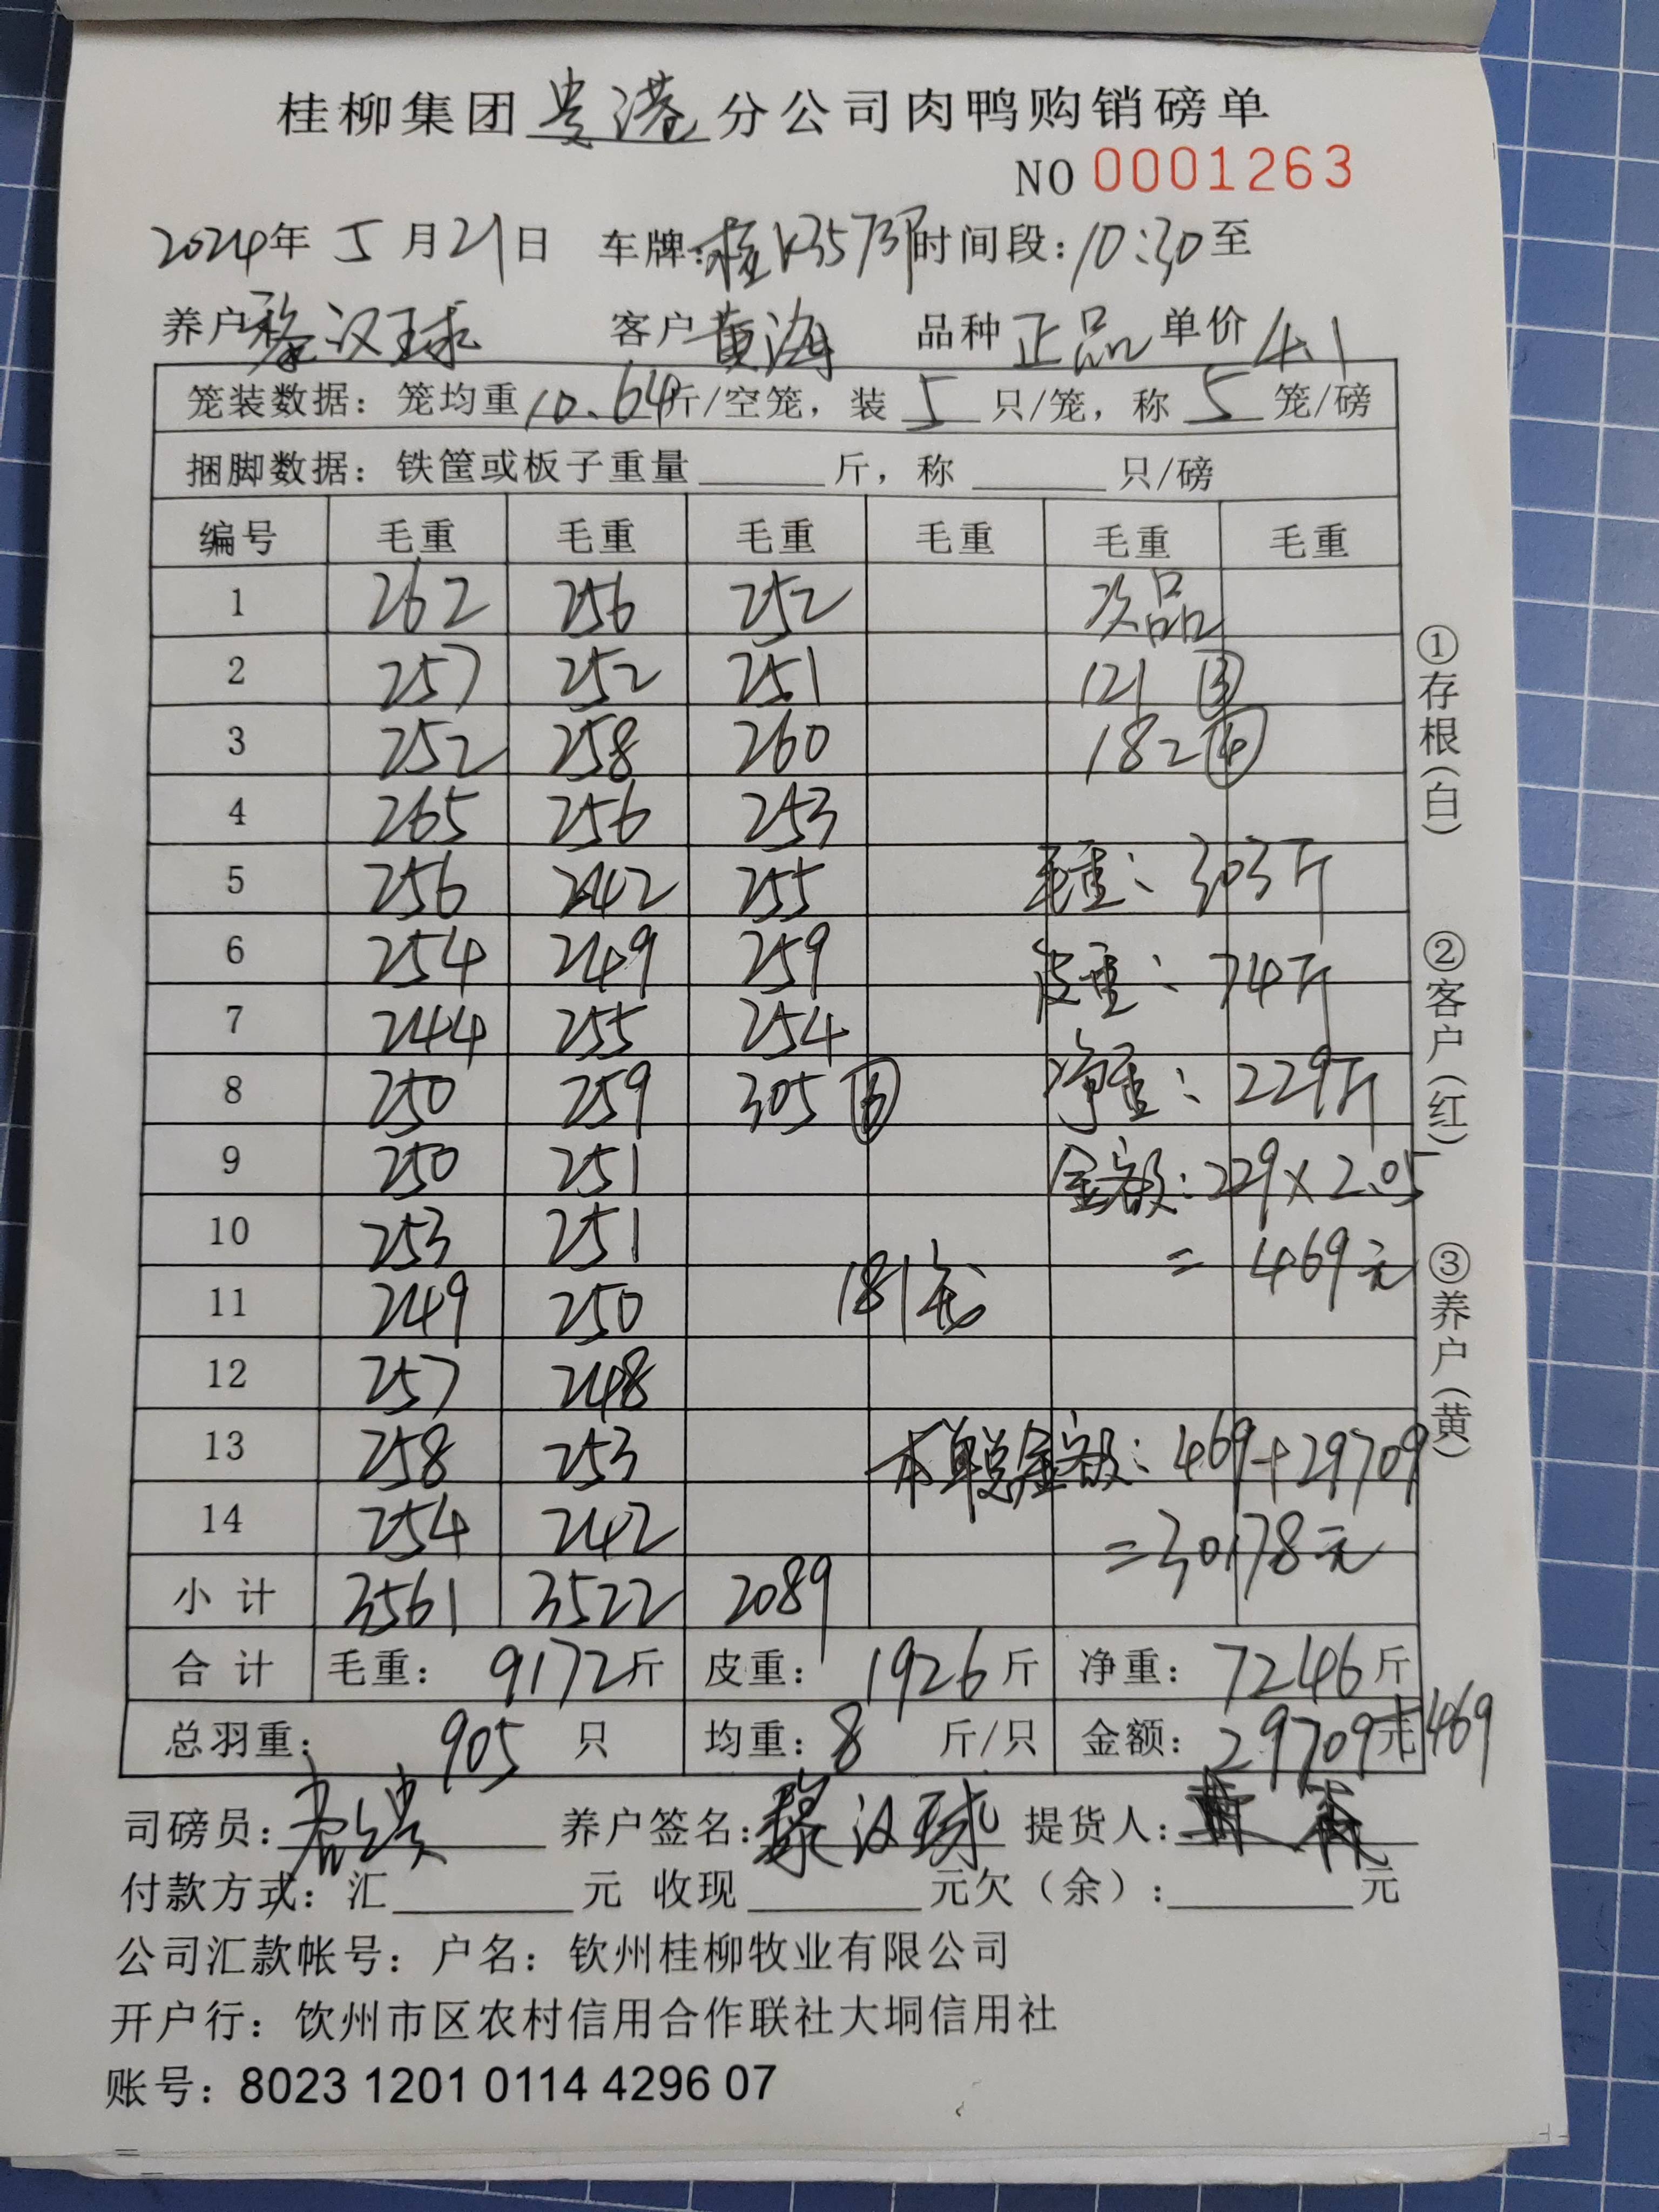 桂柳集团贵港分公司肉鸭购销磅单
NO 0001263
2024年 5月21日 车牌:桂K3573 时间段:10:30至
养户黎汉球 客户黄海 品种正品 单价4.1
笼装数据：笼均重10.64斤/空笼，装5只/笼，称5笼/磅
捆脚数据：铁筐或板子重量 斤，称 只/磅
编号 毛重 毛重 毛重 毛重 毛重 毛重
1 262 256 252 次品
2 257 252 251 121 ③
3 252 258 260 182 ④
4 265 256 253
5 256 242 255 毛重：303斤
6 254 249 259 皮重：74斤
7 244 255 254
8 250 259 305 ⑥ 净重：229斤
9 250 251 金额：229×2.05
10 253 251 = 469元
11 249 250 181笼
12 257 248
13 258 253 本单总金额：469+29709
14 254 242 =30178元
小计 3561 3522 2089
合计 毛重：9172斤 皮重：1926斤 净重：7246斤
总羽重：905只 均重：8斤/只 金额：29709元 469
司磅员： 养户签名：黎汉球 提货人：
付款方式：汇 元 收现 元欠（余）： 元
公司汇款帐号：户名：钦州桂柳牧业有限公司
开户行：饮州市区农村信用合作联社大垌信用社
账号：8023 1201 0114 4296 07
①存根(白)
②客户(红)
③养户(黄)